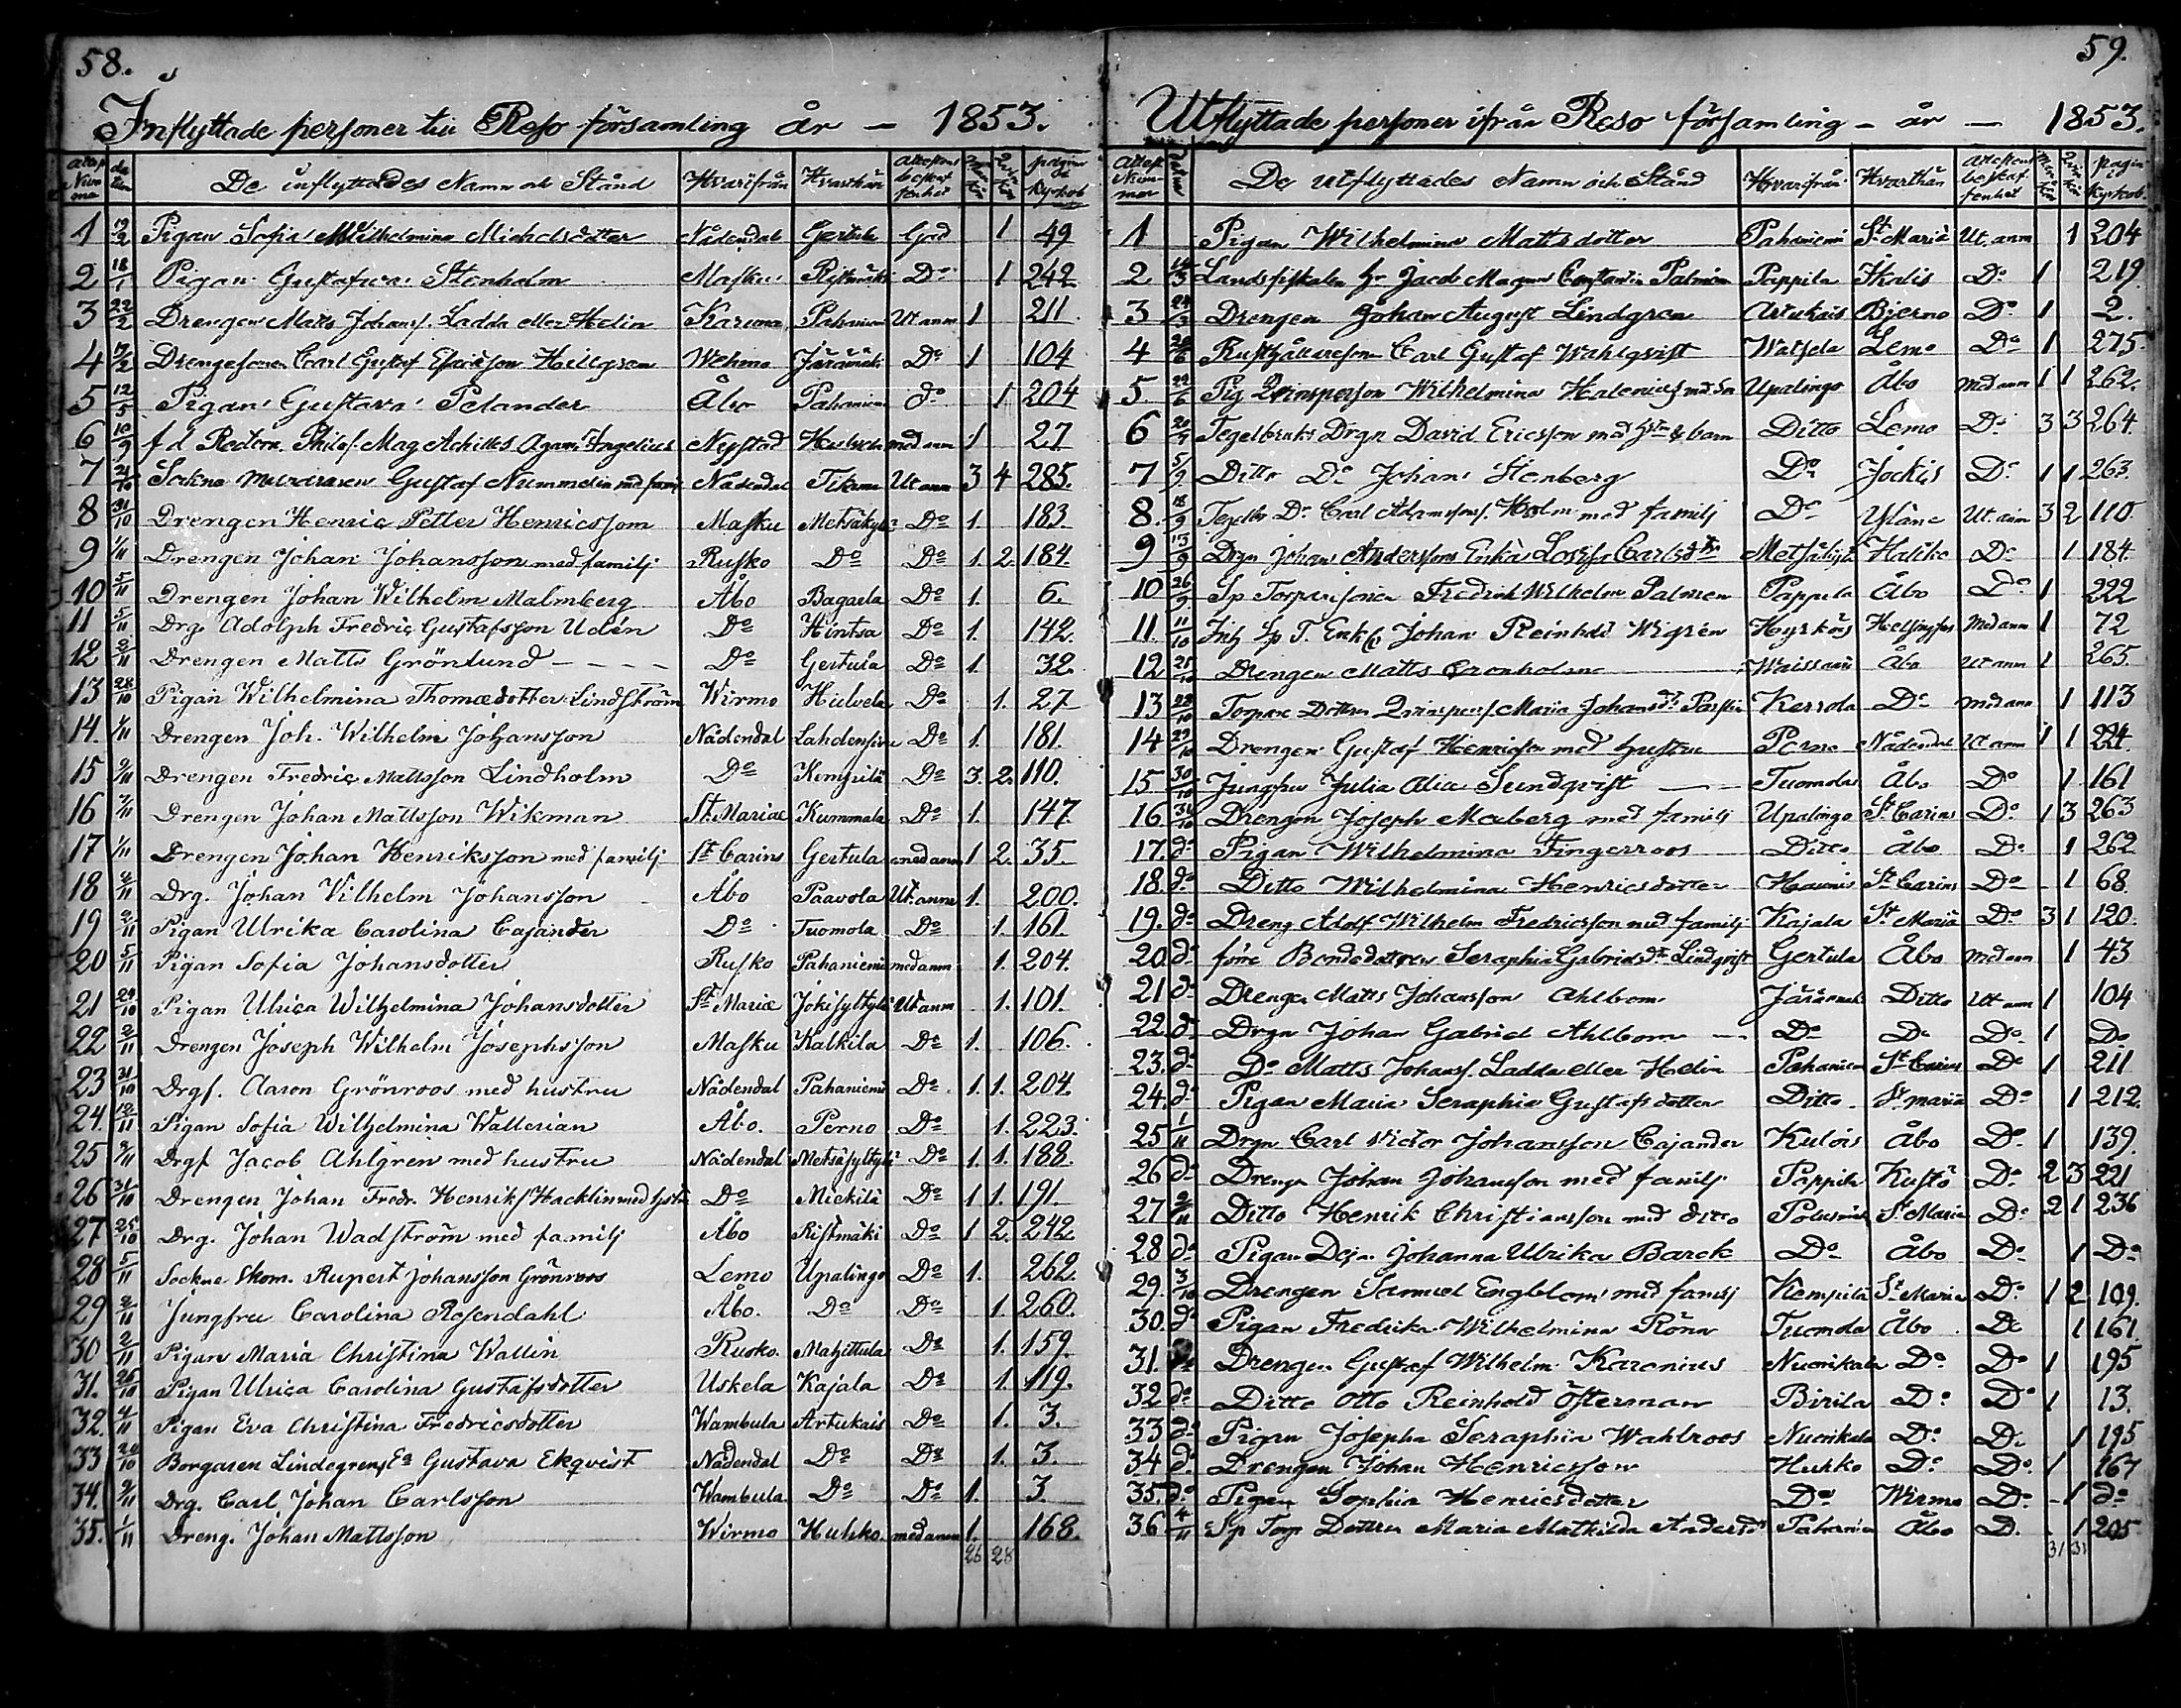 58.
Inflyttade personer till Reso församling år – 1853.
De inflyttades Namn och Stånd Hvarifrån Hvarthän
1 19/2 Pigan Sofia Wilhelmina Michelsdotter Nådendal Gertula God 1 49
2 18/1 Pigan Gustafva Stenholm Masku Ristimäki Do 1 242
3 22/2 Drengen Matts Johans. Ladda eller Helin Karuna Pahaniemi Ut anm 1 211
4 Drengesonen Carl Gustaf Hellgren Wehmo Järänmäki Do 1 104
5 12/5 Pigan Gustava Pelander Åbo Pahaniemi do 1 204
6 10/9 f d Rectorn Philos. Mag Achilles Agam: Ingelius Nystad Hulvela med anm 1 27
7 Sockne Gustaf Nummelin med familj Nådendal Ut anm 3 4 285.
8 31/10 Drengen Henric Petter Henricsson Masku Metsäkylä Do 1. 183.
9 1/11 Drengen Johan Johansson med familj Rusko Do Do 1. 2. 184.
10 5/11 Drengen Johan Wilhelm Malmberg Åbo Bagarla Do 1. 6.
11 5/11 Drg. Adolph Fredric Gustafsson Udén Do Hintsa Do 1. 142.
12 2/11 Drengen Matts Grönlund – – – – Do Gertula Do 1. 32.
13 28/10 Pigan Wilhelmina Thomædotter Lindström Wirmo Hulvela Do 1. 27
14. 1/11 Drengen Joh. Wilhelm Johansson Nådendal Do 1. 181.
15 Drengen Fredric Mattsson Lindholm Do Kempilä Do 3. 2. 110.
16 Drengen Johan Mattsson Wikman St. Mariae Kummala Do 1. 147.
17 1/11 Drengen Johan Henriksson med familj St Carins Gertula med anm 1 2. 35.
18 Drg. Johan Vilhelm Johansson Åbo Paavola Ut. anm 1. 200.
19 2/11 Pigan Ulrika Carolina Cajander Do Tuomola Do 1. 161.
20 5/11 Pigan Sofia Johansdotter Rusko Pahaniemi med anm 1. 204.
21 24/10 Pigan Ulrica Wilhelmina Johansdotter St Mariæ Ut anm 1. 101.
22 2/11 Drengen Joseph Wilhelm Josephsson Masku Kalkila Do 1. 106.
23 31/10 Drgs. Aaron Grönroos med hustru Nådendal Pahaniemi Do 1. 1. 204.
24. Pigan Sofia Wilhelmina Wallerian Åbo. Perno Do 1. 223.
25 Drgs. Jacob Ahlgren med hustru Nådendal Do 1. 1. 188.
26 31/10 Drengen Johan Fredr. Henriks. Hacklin med hstr Do Mickilä Do 1 1. 191.
27 25/10 Drg. Johan Wadström med familj Åbo Ristmäki Do 1 2. 242.
28 5/11 Sockne Skom. Rupert Johansson Grönroos Lemo Upalingo Do 1. 262.
29 2/11 Jungfru Carolina Rosendahl Åbo. Do Do 1. 260.
30 2/11 Pigan Maria Christina Wallin Rusko. Mahittula Do 1. 159.
31. 26/10 Pigan Ulrica Carolina Gustafsdotter Uskela Kajala Do 1. 119.
32. 4/11 Pigan Eva Christina Fredricsdotter Wambula Artukais Do 1. 3.
33 20/10 Borgaren Lindegrens Ea Gustava Ekqvist Nådendal Do Do 1. 3.
34. Drg. Carl Johan Carlsson Wambula. Do Do 1. 3.
35. 1/11 Dreng. Johan Mattsson Wirmo Huhko. med anm 1. 168.
26 28
59.
Utflyttade personer ifrån Reso församling – år – 1853.
De utflyttades Namn och Stånd Hvarifrån Hvarthän
1 Pigan Wilhelmina Mattsdotter Pahaniemi St Mariæ Ut. anm 1 204
2 Landsfiskalen Hr Jacob Magnus Constantin Palmén Pappila Ikalis Do 1 219
3 24/3 Drengen Johan August Lindgren Artukais Bjerno Do 1 2.
4 Rusthållaresonen Carl Gustaf Wahlqvist Watsela Lemo Do 1 275.
5. Wilhelmina Upalingo Åbo Med anm 1 1 262.
6 Tegelbruks Drgn David Ericsson med hstru & barn Ditto Lemo Do 3 3 264.
7 5/9 Ditto Do Johan Stenberg Do Jockis Do 1 1 263
8. 18/9 Tegelbr Do Carl Adamsson Holm med familj Do Yläne Ut. anm 3 2 110.
9 13/9 Drgn Johan Anderssons Enka Lovisa Carlsdtr Haliko Do 1 184.
10 26/9 Fredrik Wilhelm Palmen Pappila Åbo Do 1 222
11. 11/10 Johan Reinhold Wigren Helsingfors Med anm 1 72
12 Drengen Matts Gronholm Åbo Ut anm 1 265.
13 Torpare Dottren Maria Johansdr Kerrola Do med anm 1 113
14 29/10 Drengen Gustaf Henricsson med hustru Perno Nådendal Ut anm 1 1 224.
15 30/10 Jungfru Julia Alia Sundqvist Tuomola Åbo Do 1 161
16 31/10 Drengen Joseph Moberg med familj Upalingo St Carins Do 1 3 263
17. do Pigan Wilhelmina Fingerroos Ditto Åbo Do 1 262
18. do Ditto Wilhelmina Henricsdotter Haunis St Carins Do 1 68.
19. do Dreng Adolf Wilhelm Fredricsson med familj Kajala St Mariæ Do 3 1 120.
20. do förre Bondedottren Seraphia Gabrielsdtr Lindqvist Gertula Åbo Med anm 1 43
21 do Drengen Matts Johansson Ahlbom Ditto Ut anm 1 104
22. do Drgn Johan Gabriel Ahlbom – Do Do Do 1 Do
23. do Do Matts Johans. Ladda eller Helin Pahaniemi St Carins Do 1 211
24. do Pigan Maria Seraphia Gustafsdotter Ditto St maria Do 1 212.
25 1/11 Drgn Carl Victor Johansson Cajander Kulois Åbo Do 1 139.
26 do Drengen Johan Johansson med familj Pappila Kustö Do 2 3 221
27 2/11 Ditto Henrik Christiansson med ditto St Maria Do 2 1 236
28 do Pigan Johanna Ulrika Barck Do Åbo Do 1 Do
29. 3/10 Drengen Samuel Engblom med familj Kempilä St Maria Do 1 2 109.
30. do Pigan Fredrika Wilhelmina Röna Tuomola Åbo Do 1 161
31. Drengen Gustaf Wilhelm Karenius Nuorikala Do Do 1 195
32 do Ditto Otto Reinhold Österman Birila Do Do 1 13.
33 do Pigan Josepha Seraphia Wahlroos Nuorikala Do Do 1 195
34 do Drengen Johan Henricsson Huhko Do Do 1 167
35. do Pigan Sophia Henricsdotter Do Wirmo Do 1 do
36 4/11 Sp Torp Dottren Maria Mathilda Andersdr Pahaniemi Åbo D. 1 205
31 31